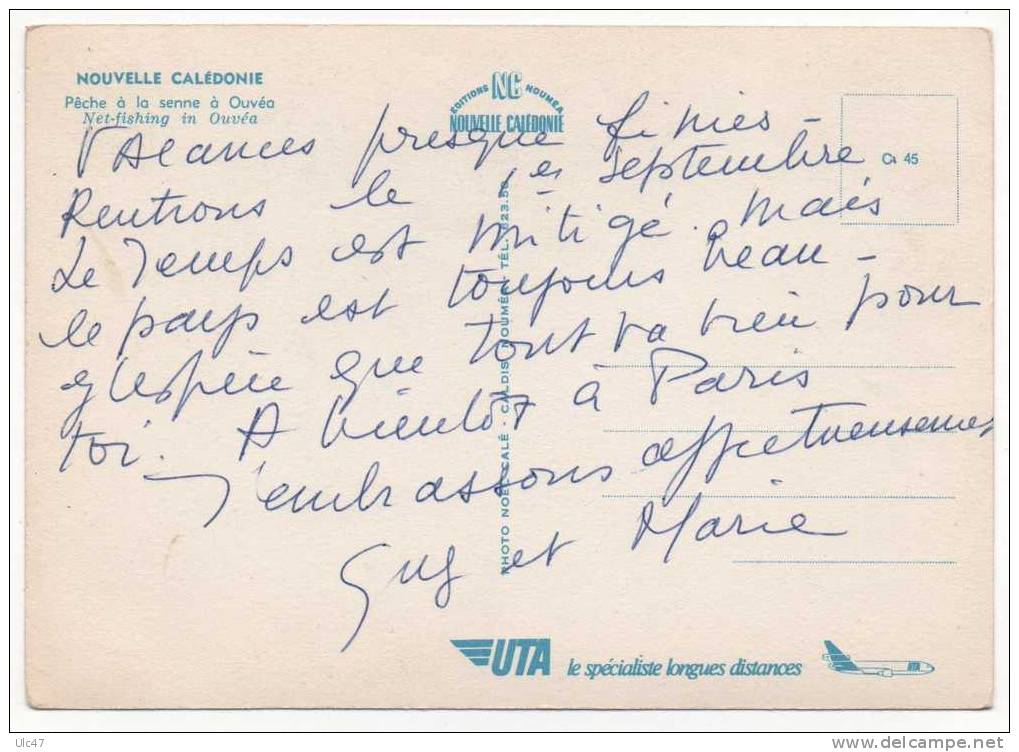 NOUVELLE CALÉDONIE
Pêche à la senne à Ouvéa
Net-fishing in Ouvéa
EDITIONS NC NOUMEA
NOUVELLE CALÉDONIE
Ca 45
Vacances presque finies -
Rentrons le 1er septembre
Le Temps est mitigé. Mais
le pays est toujours beau -
J'espère que tout va bien pour
toi. A bientôt à Paris
T'embrassons affectueusement
Guy et Marie
PHOTO NOEL CALÉ - CALDIS NOUMÉA - TÉL. 23.50
UTA le spécialiste longues distances
UTA
Ulc47
www.delcampe.net